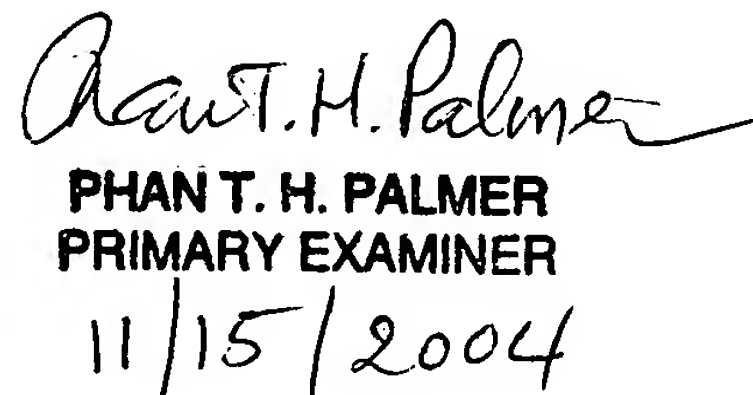 Phan T. H. Palmer
PHAN T. H. PALMER
PRIMARY EXAMINER
11/15/2004